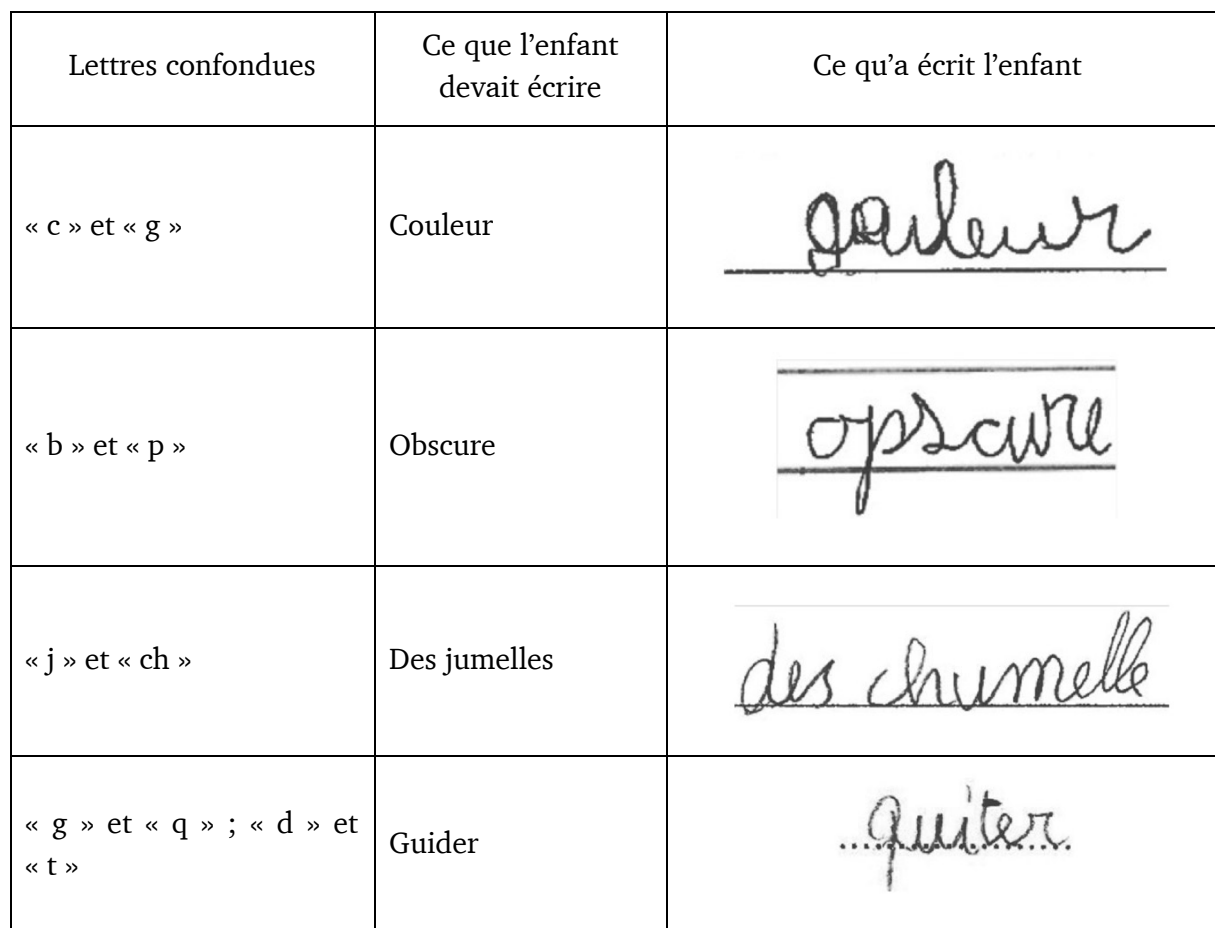 Lettres confondues
Ce que l’enfant
devait écrire
Ce qu’a écrit l’enfant
« c » et « g »
Couleur
gouleur
« b » et « p »
Obscure
opscure
« j » et « ch »
Des jumelles
des chumelle
« g » et « q » ; « d » et
« t »
Guider
quiter